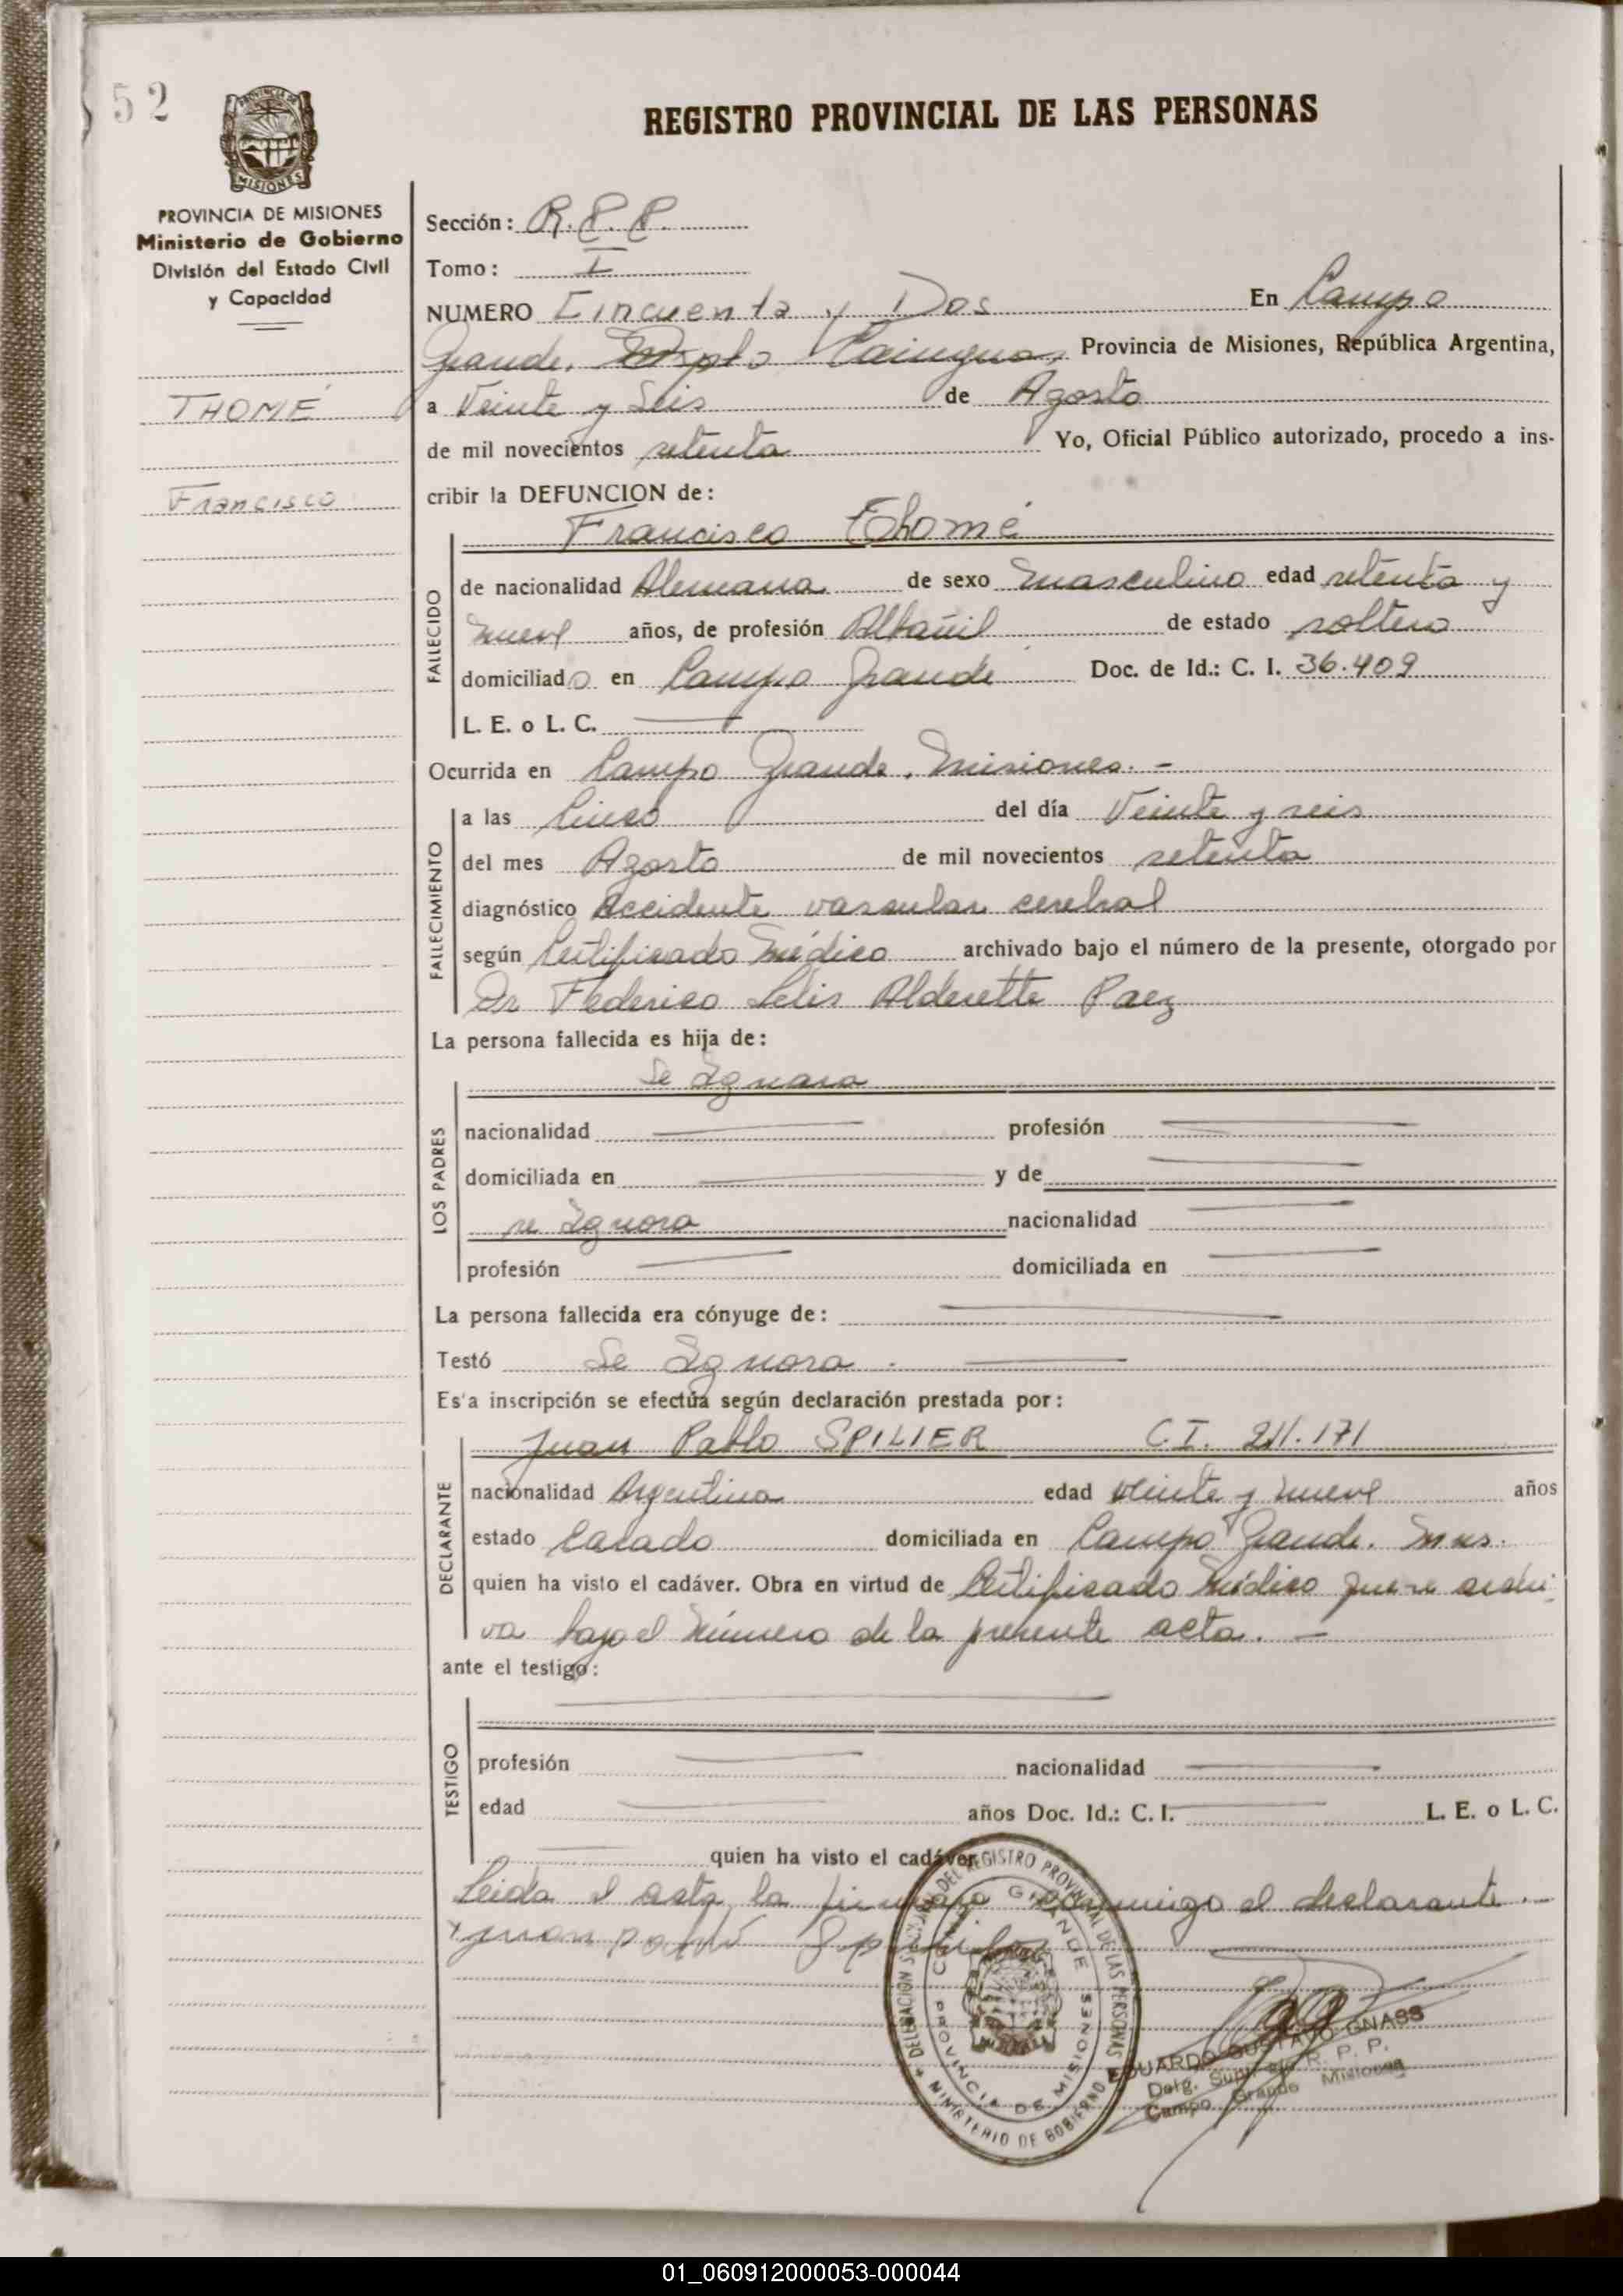 52
REGISTRO PROVINCIAL DE LAS PERSONAS
MISIONES
PROVINCIA DE MISIONES
Ministerio de Gobierno
División del Estado Civil
y Capacidad
THOMÉ
Francisco
Sección: R.P.P.
Tomo: I
NUMERO Cincuenta y Dos En Campo
Grande. Dpto Cainguas, Provincia de Misiones, República Argentina,
a Veinte y Seis de Agosto
de mil novecientos setenta Yo, Oficial Público autorizado, procedo a ins-
cribir la DEFUNCION de:
Francisco Thomé
FALLECIDO
de nacionalidad Alemana de sexo masculino edad setenta y
nueve años, de profesión Albañil de estado soltero
domiciliado en Campo Grande Doc. de Id.: C. I. 36.409
L. E. o L. C.
Ocurrida en Campo Grande. Misiones. -
FALLECIMIENTO
a las Cinco del día Veinte y seis
del mes Agosto de mil novecientos setenta
diagnóstico Accidente vascular cerebral
según Certificado Médico archivado bajo el número de la presente, otorgado por
Dr Federico Alderette Paez
La persona fallecida es hija de:
LOS PADRES
Se Ignora
nacionalidad profesión
domiciliada en y de
se Ignora nacionalidad
profesión domiciliada en
La persona fallecida era cónyuge de:
Testó Se Ignora.
Es'a inscripción se efectúa según declaración prestada por:
DECLARANTE
Juan Pablo SPILIER C.I. 211.171
nacionalidad Argentina edad veinte y nueve años
estado Casado domiciliada en Campo Grande. Mnes.
quien ha visto el cadáver. Obra en virtud de Certificado Médico que se archi
va bajo el Número de la presente acta. -
ante el testigo:
TESTIGO
profesión nacionalidad
edad años Doc. Id.: C. I. L. E. o L. C.
quien ha visto el cadáver
Leida el acta, la firmando conmigo el declarante.-
Juan
DEL REGISTRO PROVINCIAL DE LAS PERSONAS
MINISTERIO DE GOBIERNO
GRANDE
PROVINCIA DE MISIONES
EDUARDO GUSTAVO GNASS
Delg. Supl. del R. P. P.
Campo Grande Misiones
01_060912000053-000044